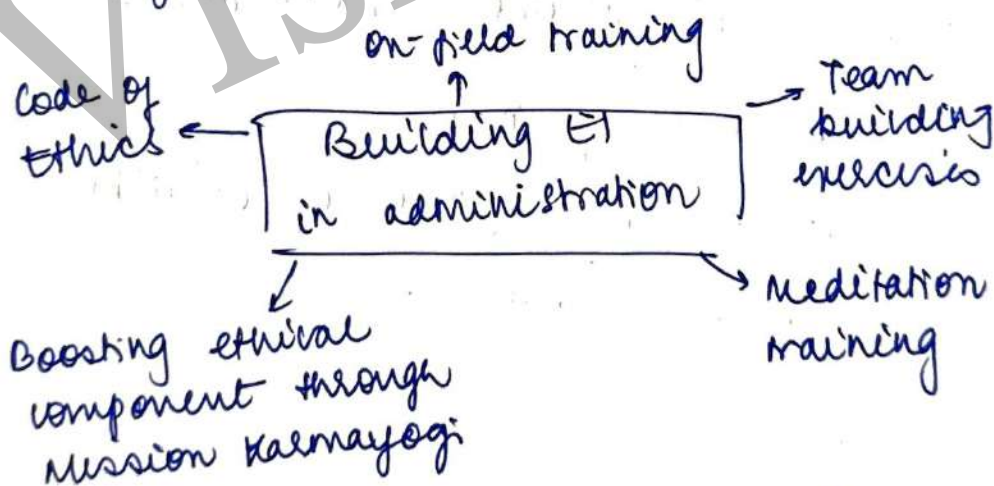 on-field training
Code of
Ethics
Team
building
exercises
Building EI
in administration
Meditation
training
Boosting ethical
component through
Mission Karmayogi